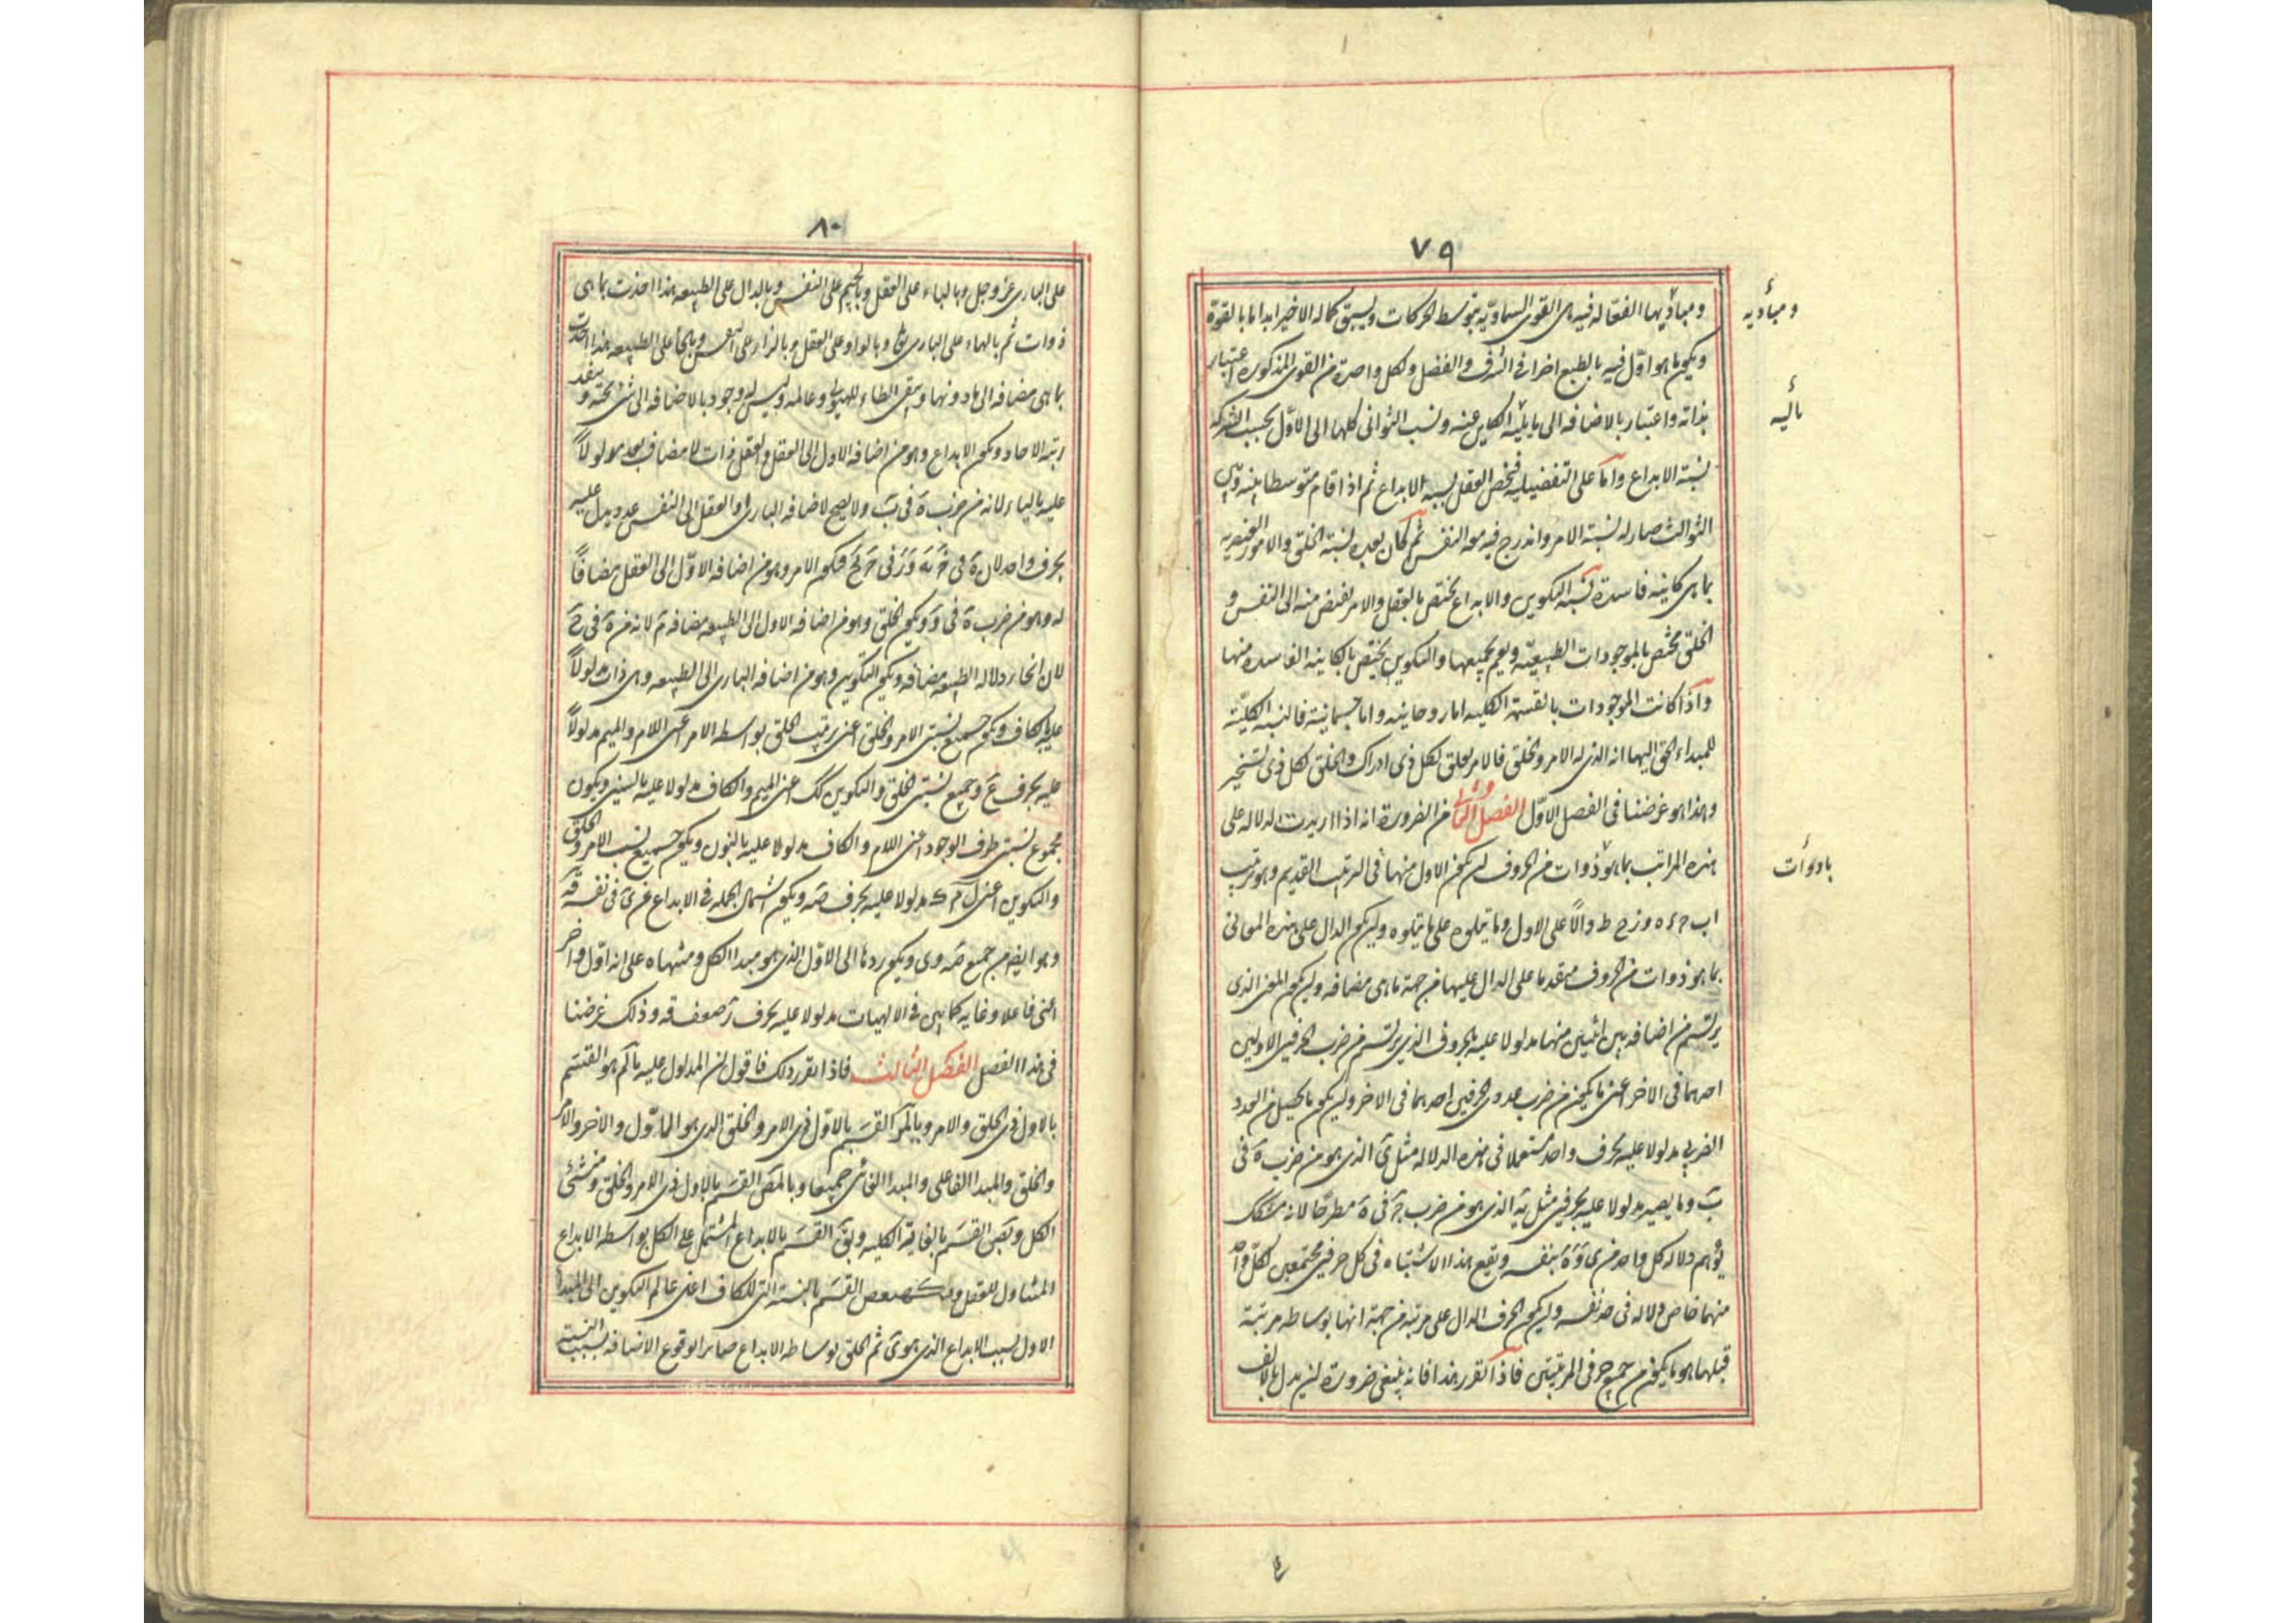 ٧٩
ومباديها الفعاله فيه هى القوى السماويه بتوسط الحركات ويسبق كماله الاخير ابدا ما بالقوة
ويكون ما هو اوّل فيه بالطبع اخرا فى الشرف والفضل ولكل واحدة من القوى المذكورة اعتبار
بذاته واعتبار بالاضافه الى ما يليه الكاين عنه ونسب الثوانى كلها الى الاوّل بحسب الشركه
نسبة الابداع واما على التفضيل فيخص العقل بنسبه الابداع ثم اذا قام متوسطا بينه وبين
الثوالث صار له نسبة الامر واندرج فيه معه النفس ثم كان بعده نسبة الخلق والامور العنصريه
بما هى كاينه فاسدة نسبة التكوين والابداع يختص بالعقل والامر يفيض منه الى النفس و
الخلق مختص بالموجودات الطبيعيّه ويعم جميعها والتكوين يختص بالكاينه الفاسده منها
واذا كانت الموجودات بالقسمة الكليه اما روحانيه واما جسمانيّة فالنسبه الكليّة
للمبداء الحق اليها انه الذى له الامر والخلق فالامر يعلق لكل ذى ادراك والخلق لكل ذى تسخير
وهذا هو غرضنا فى الفصل الاوّل الفصل الثانى من الضرورة انه اذا اريدت الدلاله على
هذه المراتب بما هو ذوات من الحروف ان يكون الاول منها فى الترتيب القديم وهو ترتيب
اب ج د ه و ز ح ط دالاً على الاول وما يتلوه على ما يتلوه وان يكون الدال على هذه المعانى
بما هو ذوات من الحروف متقدما على الدال عليها من جهة ما هى مضافه وان يكون المعنى الذى
يرتسم من اضافه بين اثنين منها مدلولا عليه بالحروف الذى يرتسم من ضرب الحرفين الاولين
احدهما فى الاخر اعنى ما يكون من ضرب عددى الحرفين احدهما فى الاخر وان يكون ما يحصل من العدد
الضربى مدلولا عليه بحرف واحد مستعملا فى هذه الدلاله مثل ى الذى هو من ضرب ه فى
ب وما يصير مدلولا عليه بحرفين مثل يه الذى هو من ضرب ج فى ه مطرحا لانه مشكك
يوهم دلاله كل واحد من ى و ه بنفسه ويقع هذا الاشتباه فى كل حرفين مجتمعين لكل واحد
منهما خاص دلاله فى حد نفسه وان يكون الحرف الدال على مرتبه من جهة انها بوساطه مرتبة
قبلها هو ما يكون من جمع حرفى المرتبتين فاذا تقرر هذا فانه ينبغى ضرورة ان يدل بالالف
وم‍باديه
ياليه
٨٠
على البارى عز وجل وبالباء على العقل وبالجيم على النفس وبالدال على الطبيعه هذا اذا اخذت بما هى
ذوات ثم بالهاء على البارى تعالى وبالواو على العقل وبالزاى على النفس وبالحاء على الطبيعه هذا اذا اخذت
بما هى مضافه الى ما دونها ويبقى الطاء للهيولى وعالمه وليس له وجود بالاضافه الى شئ تحته وينفد
رتبه الاحاد ويكون الابداع وهو من اضافه الاول الى العقل والعقل ذات لا مضاف بعد مدلولاً
عليه بالياء لانه من ضرب ه فى ب ولا يصح لاضافه البارى او العقل الى النفس عدد يدل عليه
بحرف واحد لان ه فى ج يه و و فى ج يح ويكون الامر وهو من اضافه الاوّل الى العقل مضافاً
له وهو من ضرب ه فى و ويكون الخلق وهو من اضافه الاول الى الطبيعه مضافه م لانه من ه فى ح
لان الحاء دلاله الطبيعه مضافه ويكون التكوين وهو من اضافه البارى الى الطبيعه وهى ذات مدلولاً
عليه بالكاف ويكون جميع نسبتى الامر والخلق اعنى ترتيب الخلق بواسطه الامر اعنى اللام والميم مدلولاً
عليه بحرف ع وجميع نسبتى الخلق والتكوين كك اعنى الميم والكاف مدلولا عليه بالسين ويكون
مجموع نسبتى طرفى الوجود اعنى اللام والكاف مدلولا عليه بالنون ويكون جميع نسب الامر والخلق
والتكوين اعنى ل م ك مدلولا عليه بحرف ص ويكون اشتمال الجمله فى الابداع عن ى فى نفسه ق
وهو ايضا من جمع ص وى ويكون ردها الى الاوّل الذى هو مبدا الكل ومنتهاه على انه اوّل واخر
اعنى فاعلا وغايه كما بين فى الالهيات مدلولا عليه بحرف ر ضعف ق وذلك غرضنا
فى هذا الفصل الفصل الثالث فاذا تقرر ذلك فاقول ان المدلول عليه بالم هو القسم
بالاول ذى الخلق والامر وبالمر القسم بالاوّل ذى الامر والخلق الذى هو الاوّل والاخر والامر
والخلق والمبدا الفاعلى والمبدا الغائى جميعا وبالمص القسم بالاول ذى الامر والخلق ومنشئ
الكل وبص القسم بالغايه الكليه وبق القسم بالابداع المشتمل على الكل بواسطه الابداع
المتناول للعقل وبكهيعص القسم بالنسبة التى للكاف اعنى عالم التكوين الى المبدا
الاول بنسبه الابداع الذى هو ى ثم الخلق بوساطه الابداع صائر الوقوع الاضافه بسبب النسبة